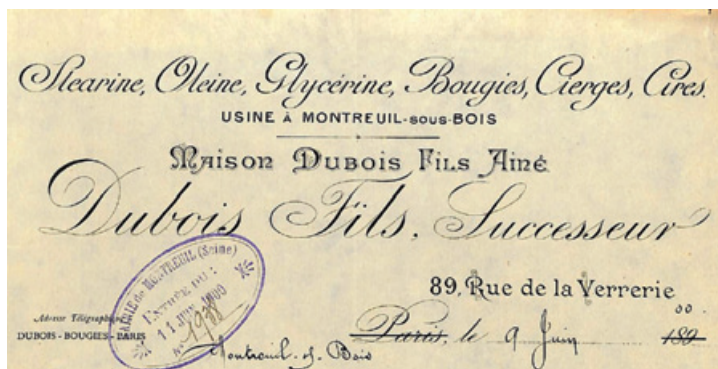 Stearine, Oleine, Glycérine, Bougies, Cierges, Cires.
USINE À MONTREUIL-SOUS-BOIS
MAISON DUBOIS FILS AINÉ
Dubois Fils, Successeur
MAIRIE de MONTREUIL (Seine)
ENTRÉE DU:
11 JUIN 1900
No 1988
89, Rue de la Verrerie
Adresse Télégraphique
DUBOIS-BOUGIES-PARIS
00.
Paris, le 9 Juin 189
Montreuil. s. Bois